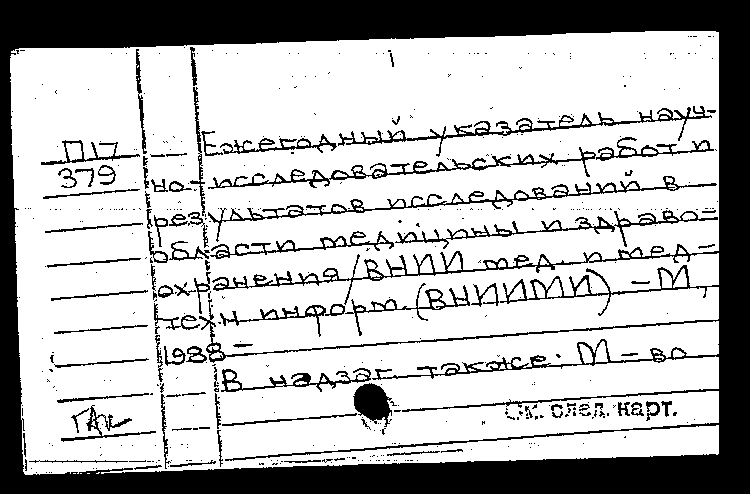 П17
379
Ежегодный указатель науч-
но-исследовательских работ и
результатов исследований в
области медицины и здраво-
охранения/ВНИИ мед. и мед-
техн информ. (ВНИИМИ) - М,
1988-
В надзаг также: М-во
См. след. карт.